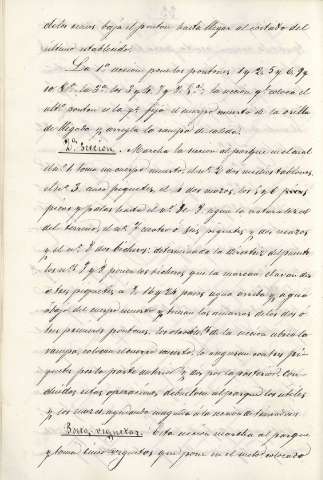 de los unos, bajo el ponton hasta llegar al costado del
ultimo establecido.
La 1ª seccion pone los pontones 1 y 2, 5 y 6, 9 y
10 &ª, la 2ª los 3 y 4, 7 y 8, &ª; la seccion qº coloca el
ultº ponton es la qº fija el cuerpo muerto de la orilla
de llegada y arregla la rampa de salida.
2ª Seccion. Marcha la seccion al parque en el cual
el nº 1 toma un cuerpo muerto, el nº 2 dos medios tablones,
el nº 3 cinco piquetes, el 4 dos mazos, los 5 y 6
picos y palas hasta el nº 3 o 8 segun la naturaleza
del terreno, el nº 7 cuatro o seis piquetes y dos mazos
y el nº 8 dos bicheros: determinada la directriz del puente
los nº 7 y 8 ponen los que la marcan clavan dos
o tres piquetes a 2, 14 y 24 pasos agua arriba y agua
abajo del cuerpo muerto y tienen las amarras de los dos o
tres primeros pontones, los de la seccion abren la
rampa, colocan el cuerpo muerto, lo aseguran con tres pi-
quetes por la parte anterior y dos por la posterior. Con-
cluidas estas operaciones, devuelven al parque los utiles
y los marcha ayudando enseguida a la seccion de
Porta-viguetas. Esta seccion marcha al parque
y toma cinco viguetas que pone en el suelo colocado